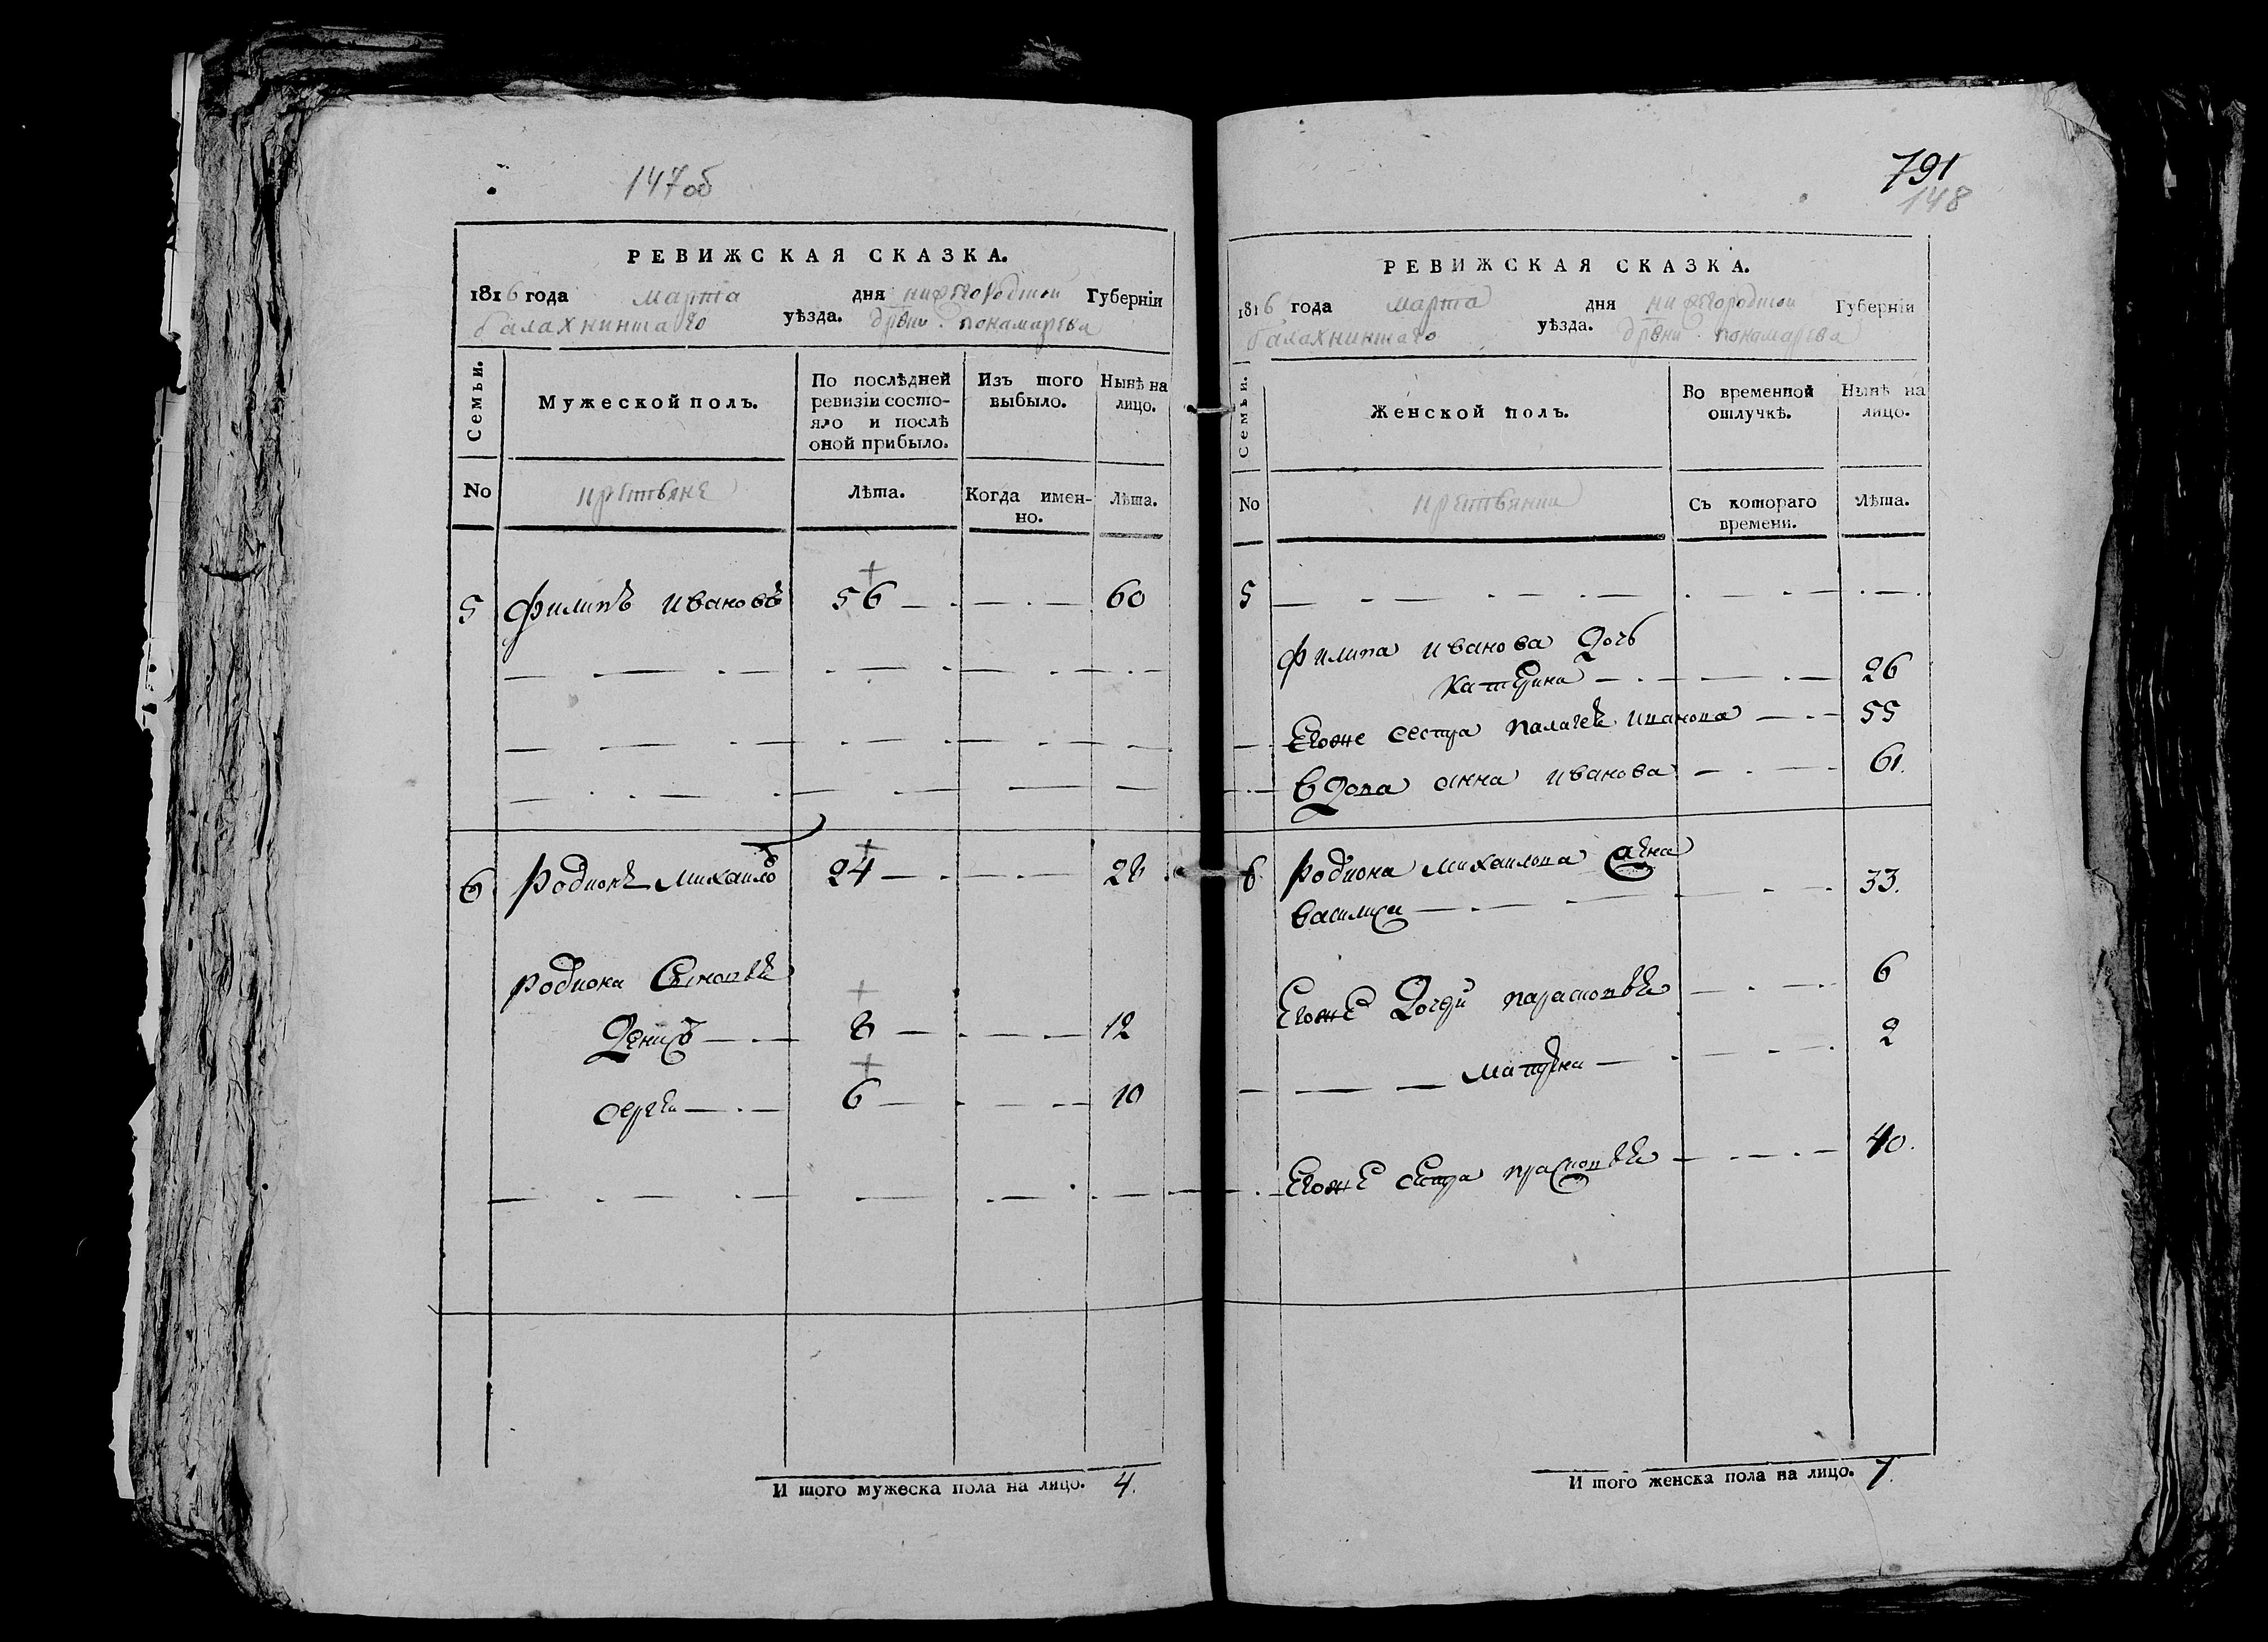 147об
РЕВИЖСКАЯ СКАЗКА.
1816 года марта дня нижегородской Губерніи
балахнинскаго уѣзда. дрвни понамарева
Семьи.
Мужеской полъ.
По послѣдней ревизіи состояло и послѣ оной прибыло.
Изъ того выбыло.
Нынѣ на лицо.
No
крестьяне
Лѣта.
Когда именно.
Лѣта.
5 филипъ ивановъ 56 60
6 родионъ михаило 24 28
родиона Сыновья
Денисъ 8 12
сергеи 6 10
И того мужеска пола на лицо. 4.
791
148
РЕВИЖСКАЯ СКАЗКА.
1816 года марта дня нижегородской Губерніи
балахнинскаго уѣзда. дрвни понамарева
Семьи.
Женской полъ.
Во временной отлучкѣ.
Нынѣ на лицо.
No
крестьянки
Съ котораго времени.
Лѣта.
5
филипа иванова Дочь
катерина 26
Егоже сестра палагея иванова 55
вдова анна иванова 61.
6 родиона михаилова жена
василиса 33.
Егоже Дочери парасковья 6
матрена 2
Егоже сестра прасковья 40.
И того женска пола на лицо. 7.